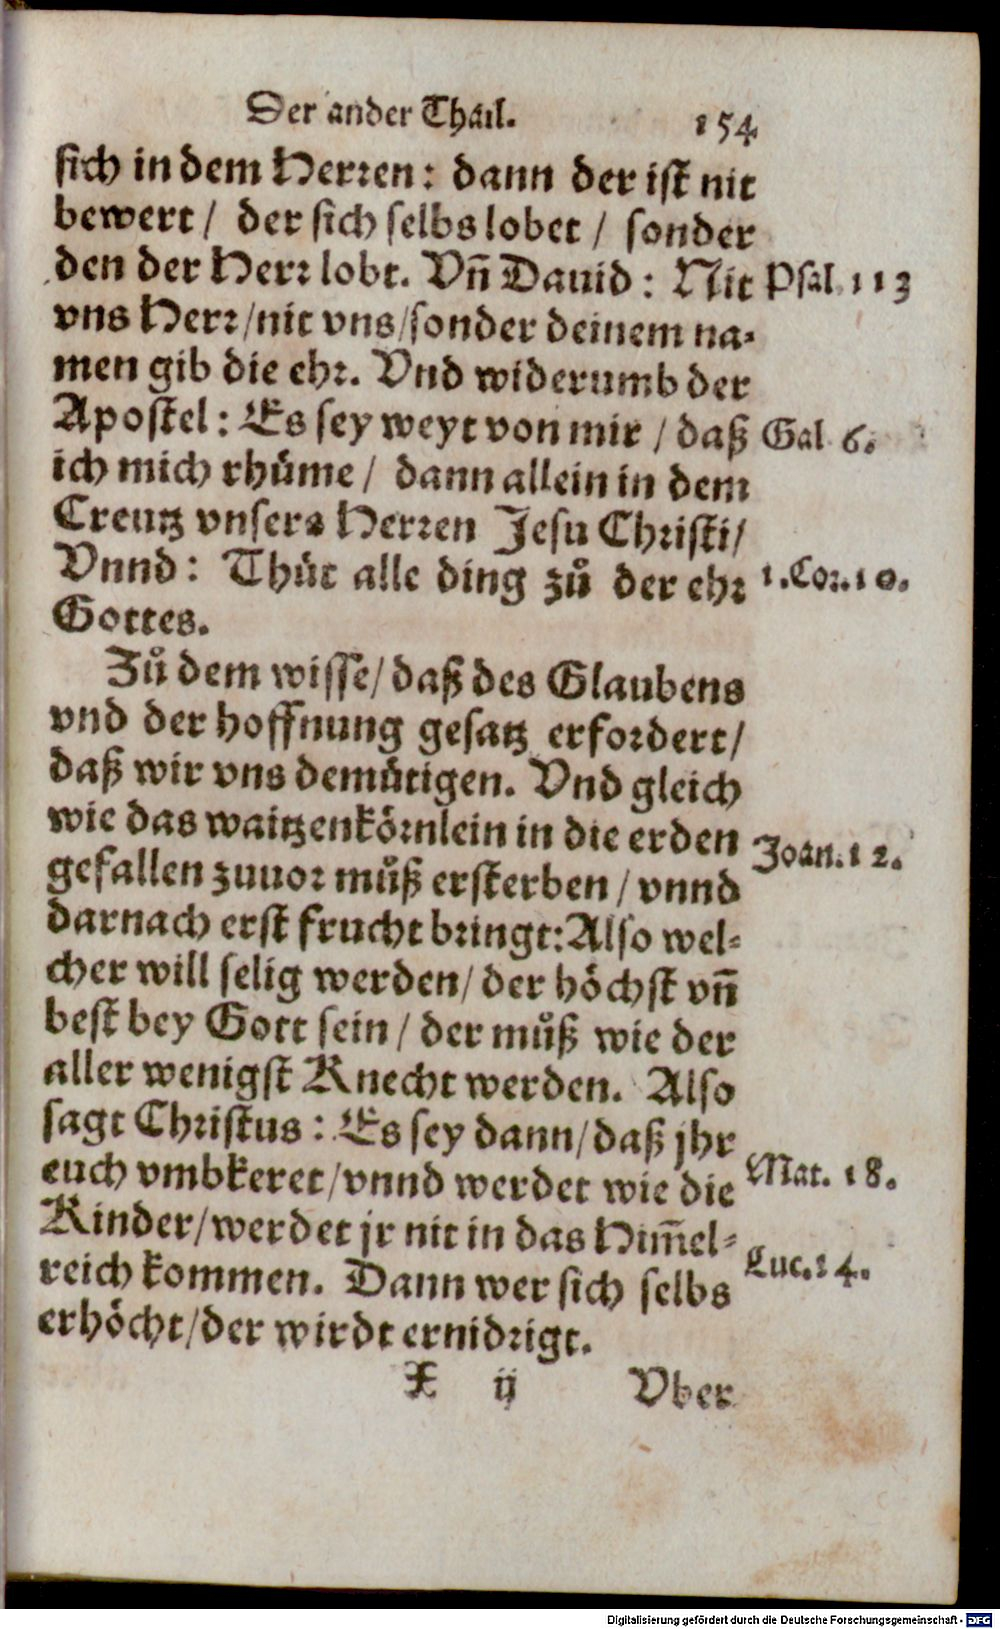 Der ander Thail. 154
sich in dem Herren: dann der ist nit
bewert / der sich selbs lobet / sonder
den der Herr lobt. Vñ Dauid: Nit Psal. 113
vns Herr/nit vns/sonder deinem na-
men gib die ehr. Vnd widerumb der
Apostel: Es sey weyt von mir / daß Gal 6.
ich mich rhüme / dann allein in dem
Creutz vnsers Herren Jesu Christi/
Vnnd: Thůt alle ding zů der ehr 1.Cor.10.
Gottes.
Zů dem wisse/daß des Glaubens
vnd der hoffnung gesatz erfordert/
daß wir vns demütigen. Vnd gleich
wie das waitzenkörnlein in die erden Joan.12.
gefallen zuuor můß ersterben / vnnd
darnach erst frucht bringt:Also wel-
cher will selig werden/der höchst vñ
best bey Gott sein / der můß wie der
aller wenigst Knecht werden. Also
sagt Christus: Es sey dann/daß jhr
euch vmbkeret/vnnd werdet wie die Mat. 18.
Kinder/werdet jr nit in das Him̃el-
reich kommen. Dann wer sich selbs Luc.14.
erhöcht/der wirdt ernidrigt.
X ij Vber
Digitalisierung gefördert durch die Deutsche Forschungsgemeinschaft - DFG